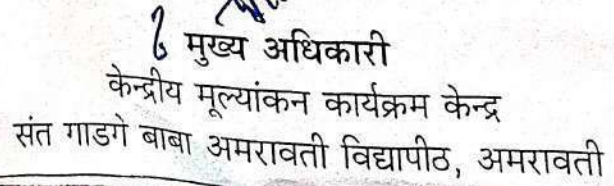 मुख्य अधिकारी
केन्द्रीय मूल्यांकन कार्यक्रम केन्द्र
संत गाडगे बाबा अमरावती विद्यापीठ, अमरावती